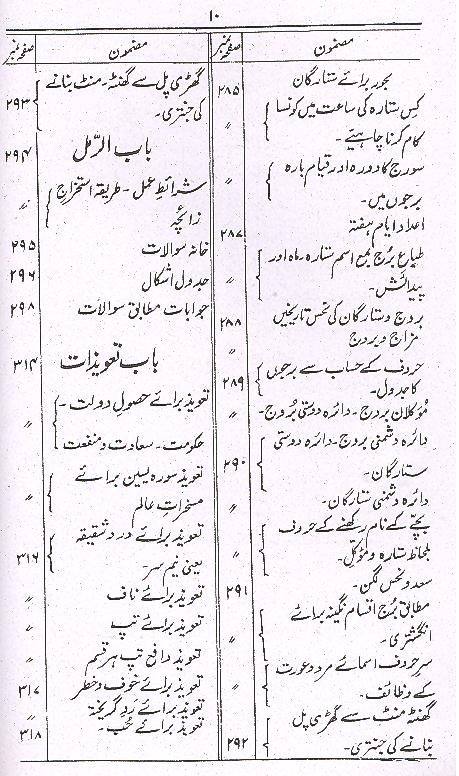 ۱۰
مضمون صفحہ نمبر
بخور برائے ستارگان ۲۸۵
کس ستارہ کی ساعت میں کونسا
کام کرنا چاہیئے۔ 〃
سورج کا دورہ اور قیام بارہ
برجوں میں۔ 〃
اعداد ایام ہفتہ ۲۸۷
طبایع بُرج بمع اسم ستارہ۔ ماہ اور
پیدائش۔ 〃
بروج و ستارگان کی نحس تاریخیں ۲۸۸
مزاج و بروج 〃
حروف کے حساب سے برجوں
کا جدول۔ ۲۸۹
مؤکلان بروج۔ دائرہ دوستی بُروج۔ 〃
دائرہ دشمنی بروج۔ دائرہ دوستی
ستارگان۔ ۲۹۰
دائرہ دشمنی ستارگان۔ 〃
بچّے کے نام رکھنے کے حروف
بلحاظ ستارہ و مؤکل۔ 〃
سعد و نحس لگن۔ ۲۹۱
مطابق بُرج اقسام نگینہ برائے
انگشتری۔ 〃
سر حروف اسمائے مرد و عورت
کے وظائف۔ 〃
گھنٹہ منٹ سے گھڑی پل
بنانے کی جنتری۔ ۲۹۲
مضمون صفحہ نمبر
گھڑی پل سے گھنٹہ۔ منٹ بنانے
کی جنتری۔ ۲۹۳
باب الرّمل ۲۹۴
شرائط عمل۔ طریقہ استخراج
زائچہ 〃
خانہ سوالات ۲۹۵
جدول اشکال ۲۹۶
جوابات مطابق سوالات ۲۹۸
باب تعویذات ۳۱۴
تعویذ برائے حصول دولت۔
حکومت۔ سعادت و منفعت 〃
تعویذ سورہ یٰسین برائے
مسخرات عالم 〃
تعویذ برائے درد شقیقہ
یعنی نیم سر۔ ۳۱۶
تعویذ برائے ناف 〃
تعویذ برائے تپ 〃
تعویذ دافع تپ ہر قسم 〃
تعویذ برائے خوف و خطر ۳۱۷
تعویذ برائے ردِ گریختہ 〃
تعویذ برائے حُب۔ ۳۱۸